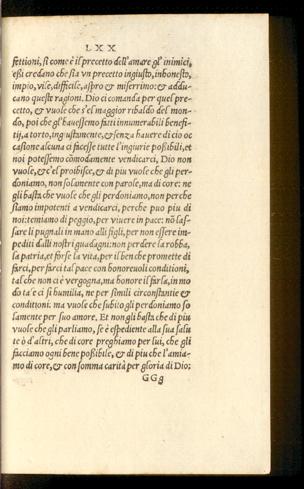 LXX
fettioni, si come è il precetto dell'amare gl' inimici,
eßi credano che sia vn precetto ingiusto, inhonesto,
impio, vile, difficile, aspro & miserrimo: & addu-
cano queste ragioni. Dio ci comanda per quel pre-
cetto, & vuole che s'el maggior ribaldo del mon-
do, poi che gl'hauessemo fatti innumerabili benefi-
tij, a torto, ingiustamente, & senza hauere di cio oc
casione alcuna ci facesse tutte l'ingiurie poßibili, et
noi potessemo cōmodamente vendicarci, Dio non
vuole, & c'el prohibisce, & di piu vuole che gli per-
doniamo, non solamente con parole, ma di core: ne
gli basta che vuole che gli perdoniamo, non perche
siamo impotenti a vendicarci, perche puo piu di
noi: temiamo di peggio, per viuere in pace: nō las-
sare li pugnali in mano alli figli, per non essere im-
pediti dalli nostri guadagni: non perdere la robba,
la patria, et forse la vita, per il ben che promette di
farci, per farci tal pace con honoreuoli conditioni,
tal che non ci è vergogna, ma honore il farla, in mo
do ta'l e ci si humilia, ne per simili circonstantie &
conditioni: ma vuole che subito gli perdoniamo so
lamente per suo amore. Et non gli basta che di piu
vuole che gli parliamo, se è espediente alla sua salu
te ò d'altri, che di core preghiamo per lui, che gli
facciamo ogni bene poßibile, & di piu che l'amia-
mo di core, & con somma carità per gloria di Dio:
GGg